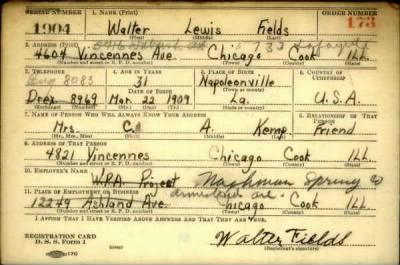 SERIAL NUMBER 1. NAME (Print) ORDER NUMBER
1904 Walter Lewis Fields 173
(First) (Middle) (Last)
2. ADDRESS (Print)
4604 Vincennes Ave. Chicago Cook ILL
(Number and street or R. F. D. number) (Town) (County) (State)
3. TELEPHONE 4. AGE IN YEARS 5. PLACE OF BIRTH 6. COUNTRY OF CITIZENSHIP
8083 31 Napoleonville
DATE OF BIRTH (Town or county)
Drex 8969 Mar. 22 1909 La. U.S.A.
(Exchange) (Number) (Mo.) (Day) (Yr.) (State or country)
7. NAME OF PERSON WHO WILL ALWAYS KNOW YOUR ADDRESS 8. RELATIONSHIP OF THAT PERSON
Mrs. C. A. Kemp Friend
(Mr., Mrs., Miss) (First) (Middle) (Last)
9. ADDRESS OF THAT PERSON
4821 Vincennes Chicago Cook ILL
(Number and street or R. F. D. number) (Town) (County) (State)
10. EMPLOYER'S NAME
W.P.A. Project Nachman Spring Co
11. PLACE OF EMPLOYMENT OR BUSINESS
12249 Ashland Ave. Chicago Cook ILL
(Number and street or R. F. D. number) (Town) (County) (State)
I AFFIRM THAT I HAVE VERIFIED ABOVE ANSWERS AND THAT THEY ARE TRUE.
REGISTRATION CARD
D. S. S. Form 1 Walter Fields
(Registrant's signature)